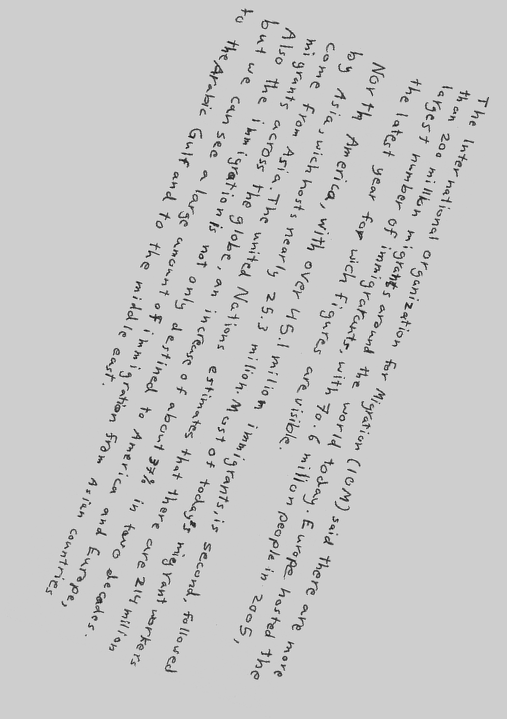 The International organization for Migration (IOM) said there are more
than 200 million migrants around the world today. Europe hosted the
largest number of immigrants, with 70.6 million people in 2005,
the latest year for wich figures are visible.
North America, with over 45.1 million immigrants, is second, followed
by Asia, wich hosts nearly 25.3 million. Most of todays migrant workers
come from Asia. The united Nations estimates that there are 214 million
migrants across the globe, an increase of about 37% in two decades.
Also the immigration is not only destined to America and Europe,
but we can see a large amount of immigration from Asian countries
to the Arabic Gulf and to the middle east.